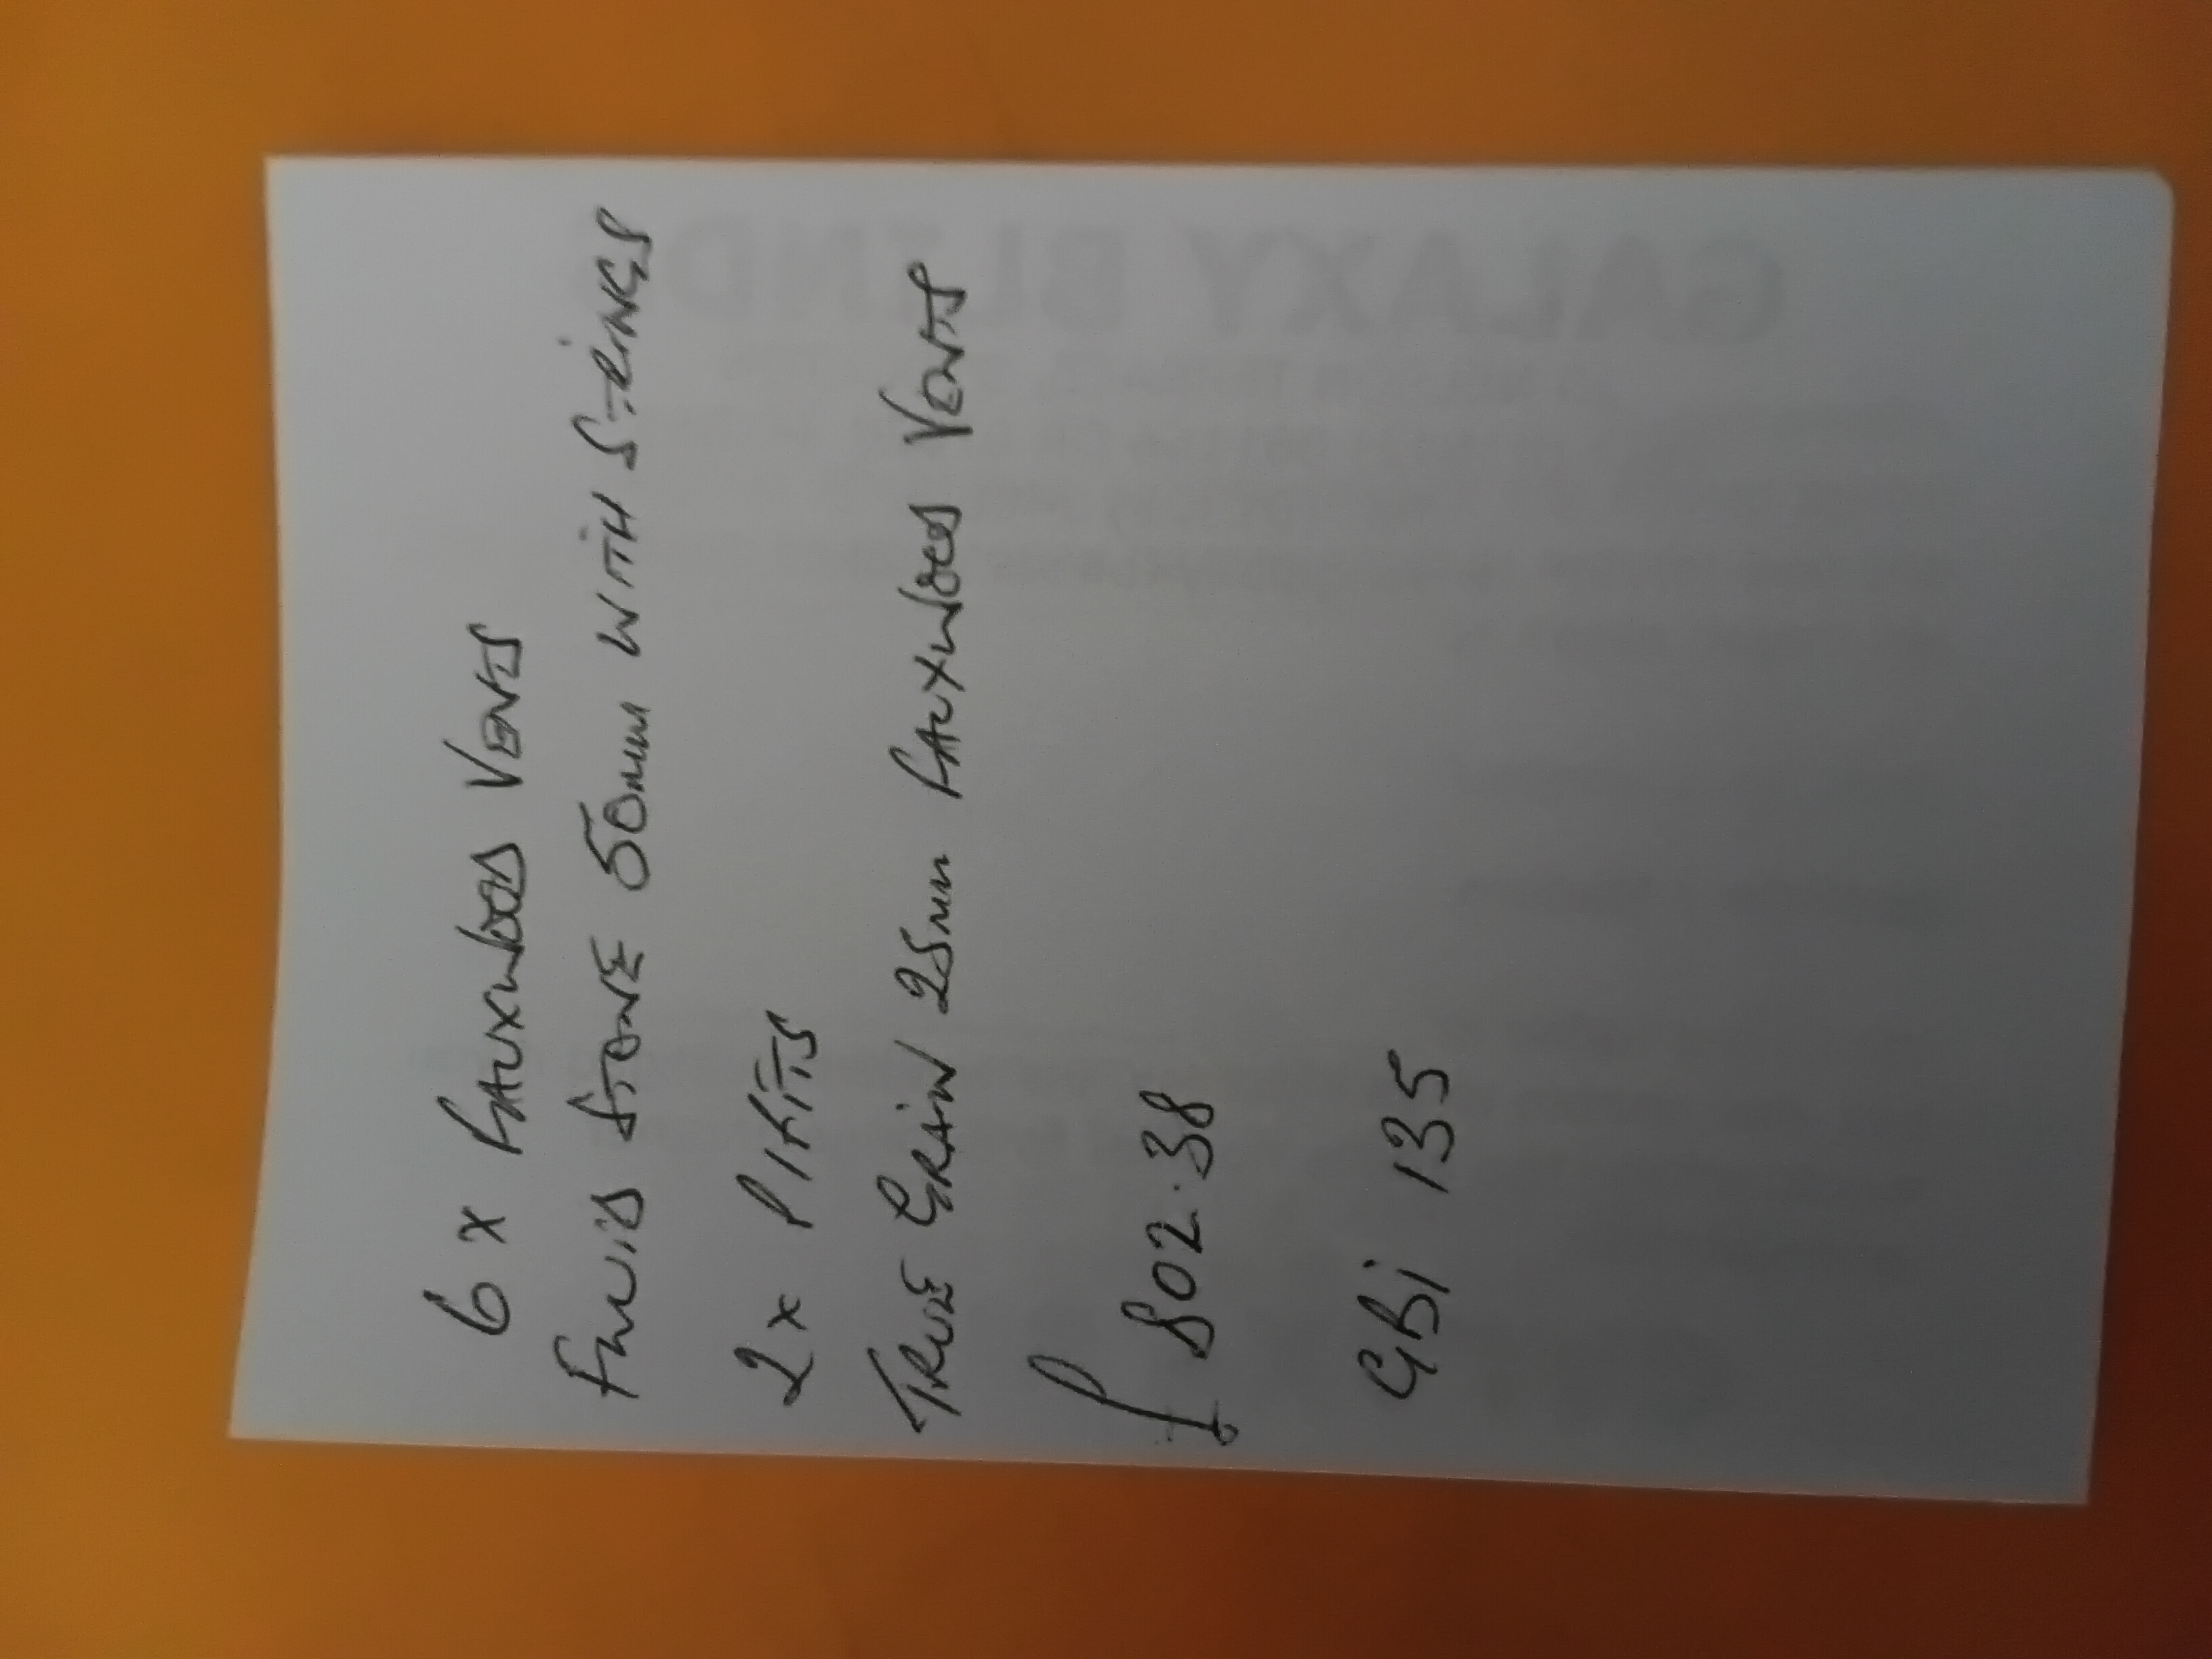 6 x FAUXWOOD VENTS
FLUID STONE 50mm WITH STRINGS
2 x P/FITS
TRUE GRAIN 25mm FAUXWOOD VENTS
£ 802.38
GBi 135
GALAXY BLIND